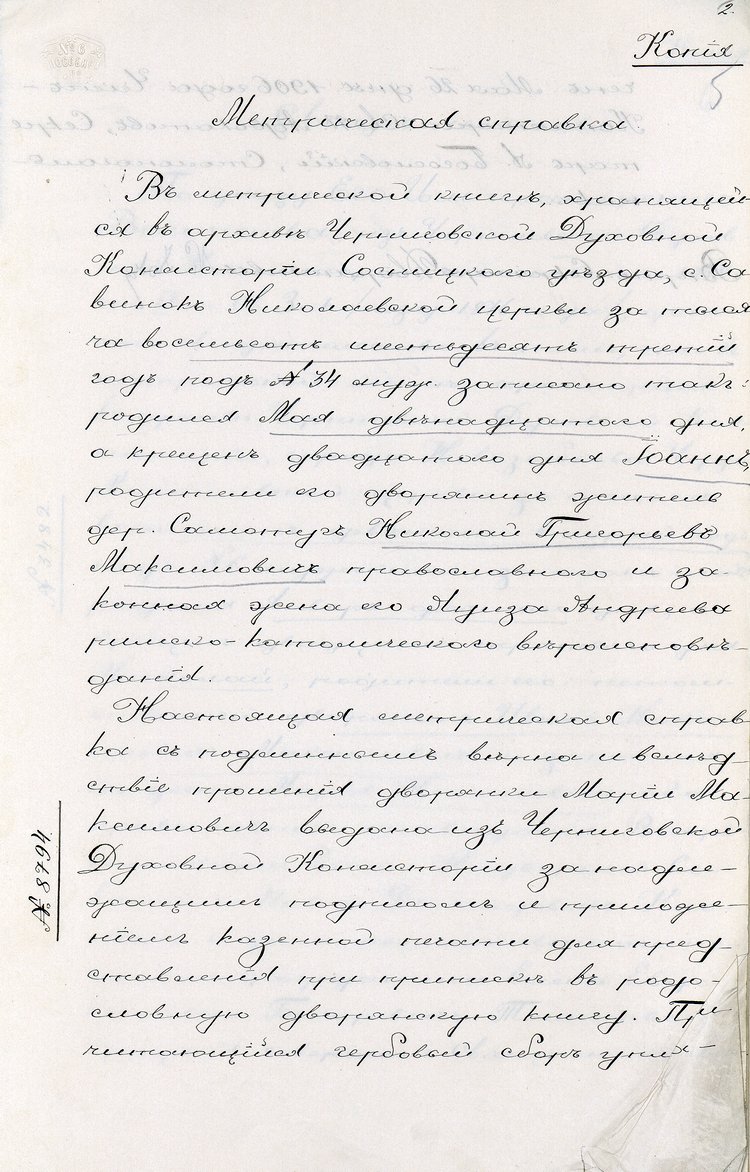 2.
Копія
5
Метрическая справка.
Въ метрической книгѣ, хранящей-
ся въ архивѣ Черниговской Духовной
Консисторіи Сосницкого уѣзда, с. Са
винокъ Николаевской церкви за тыся
ча восемьсотъ шестьдесятъ третій
годъ подъ № 34 муж. записано такъ:
родился Мая двѣнадцатого дня,
а крещенъ двадцатого дня Іоаннъ,
родители его дворянинъ житель
дер. Самотугъ Николай Григорьевъ
Максимовичъ православного и за
конная жена его Луиза Андреева
римско-католического вѣроисповѣ-
данія.
Настоящая метрическая справ
ка съ подлиннымъ вѣрна и вслѣд-
ствіе прошенія дворянки Маріи Ма-
ксимовичъ выдана изъ Черниговской
Духовной Консисторіи за надле-
жащимъ подписомъ и приложе-
ніемъ казенной печати для пред-
ставленія при припискѣ въ родо-
словную дворянскую книгу. При
читающійся гербовый сборъ упла-
№ 8794